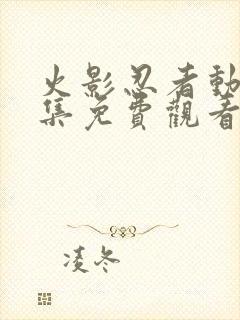 火影忍者動
集免費觀看
凌冬